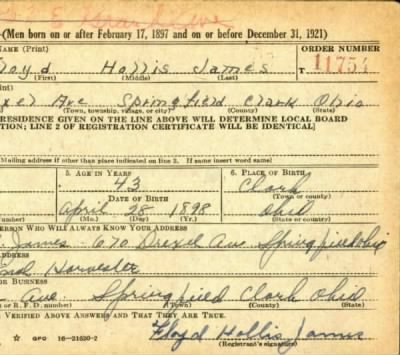 (Men born on or after February 17, 1897 and on or before December 31, 1921)
NAME (Print) ORDER NUMBER
Floyd Hollis James T 11754
(First) (Middle) (Last)
Drexel Ave Springfield, Clark Ohio
(Town, township, village, or city) (County) (State)
RESIDENCE GIVEN ON THE LINE ABOVE WILL DETERMINE LOCAL BOARD
TION; LINE 2 OF REGISTRATION CERTIFICATE WILL BE IDENTICAL]
Mailing address if other than place indicated on line 2. If same insert word same)
5. AGE IN YEARS 6. PLACE OF BIRTH
43 Clark
DATE OF BIRTH (Town or county)
April 28 1898 Ohio
(Mo.) (Day) (Yr.) (State or country)
PERSON WHO WILL ALWAYS KNOW YOUR ADDRESS
James - 670 Drexel Ave Springfield Ohio
NAME AND ADDRESS
Harvester
OR BUSINESS
Ave Springfield Clark Ohio
or R. F. D. number) (Town) (County) (State)
VERIFIED ABOVE ANSWERS AND THAT THEY ARE TRUE.
Floyd Hollis James
GPO 16—21630-2 (Registrant's signature)